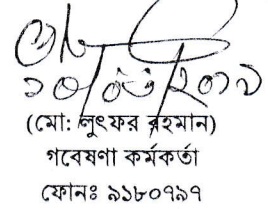 ১০/০৬/২০১৯
(মো: লুৎফর রহমান)
গবেষণা কর্মকর্তা
ফোনঃ ৯১৮০৭৯৭